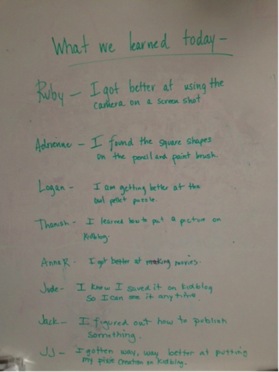 What we learned today-
Ruby - I got better at using the
camera on a screen shot
Adrienne - I found the square shapes
on the pencil and paint brush.
Logan - I am getting better at the
owl pellet puzzle.
I learned how to put a picture on
Kidblog.
Anna R. - I got better at making movies.
Jude - I know I saved it on kidblog
So I can see it anytime
Jack - I figured out how to publish
something.
JJ - I gotten way, way better at putting
my piece creation on Kidblog.